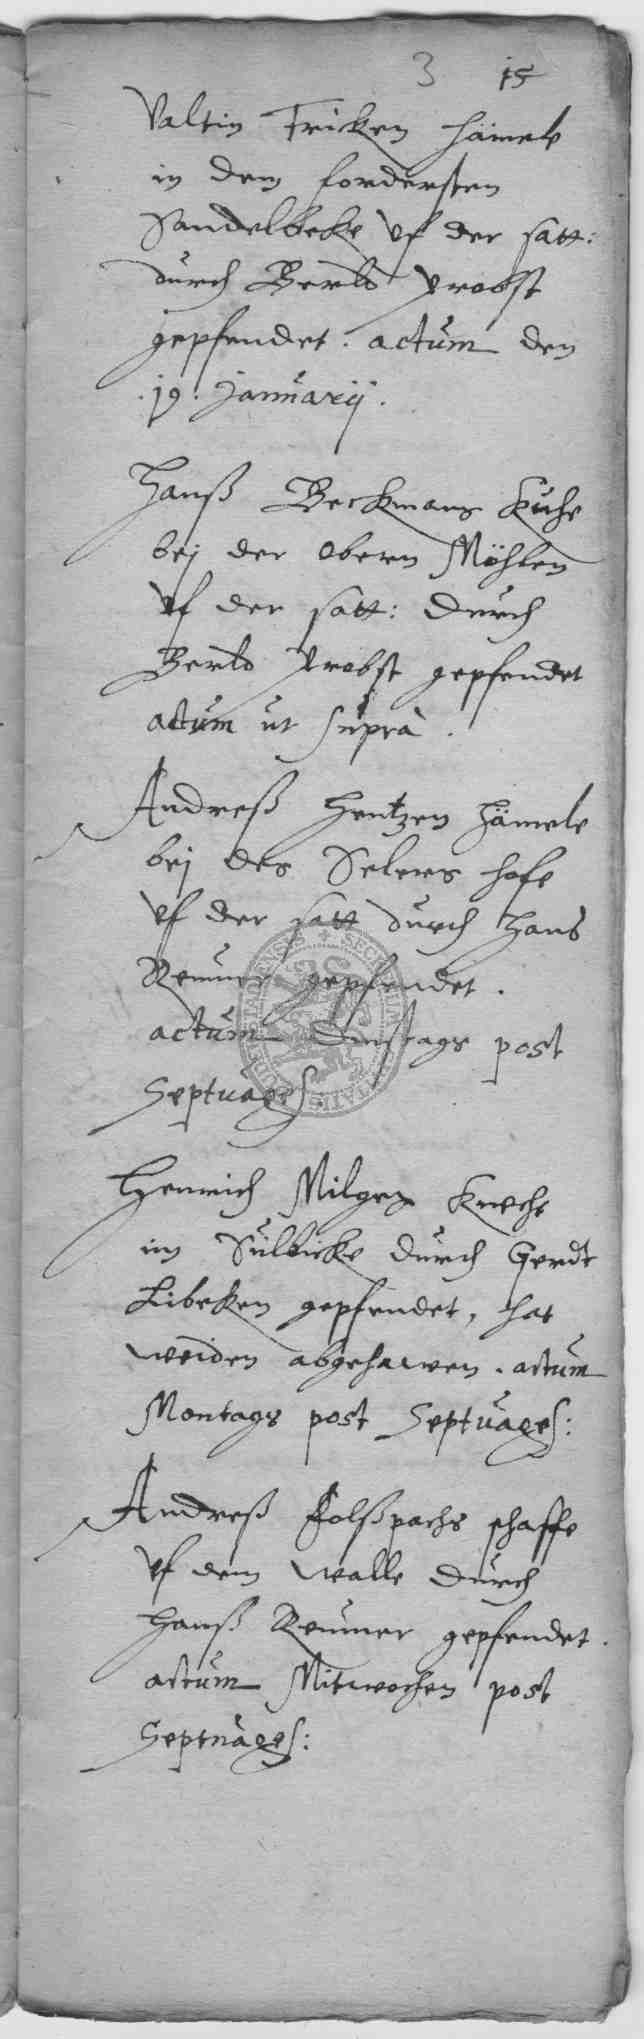 3 15
Valtin Fricken Hämele
in dem fordersten
Sandelbeke vf der satt:
durch Berld Probst
gepfendet. actum den
.19. Januarij.
Hanß Beckmans Kuhe
bej der obern Möhlen
vf der satt: durch
Berld Probst gepfendet
actum ut suprà.
Andreß Hentzen Hämele
bej des Selers hofe
vf der satt durch Hans
Reumer gepfendet.
actum Dinstags post
Septuages:
Henrich Milges Knecht
im Sulbicke durch Gerdt
Libeken gepfendet, hat
weiden abgehawen. actum
Montags post Septuages:
Andreß Folßpachs schaffe
vf dem walle durch
Hanß Reumer gepfendet.
actum Mitwochen post
Septuages: